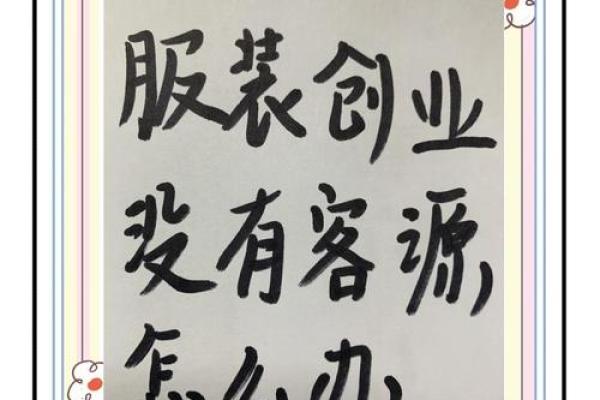 服装创业
没有客源,
怎么办